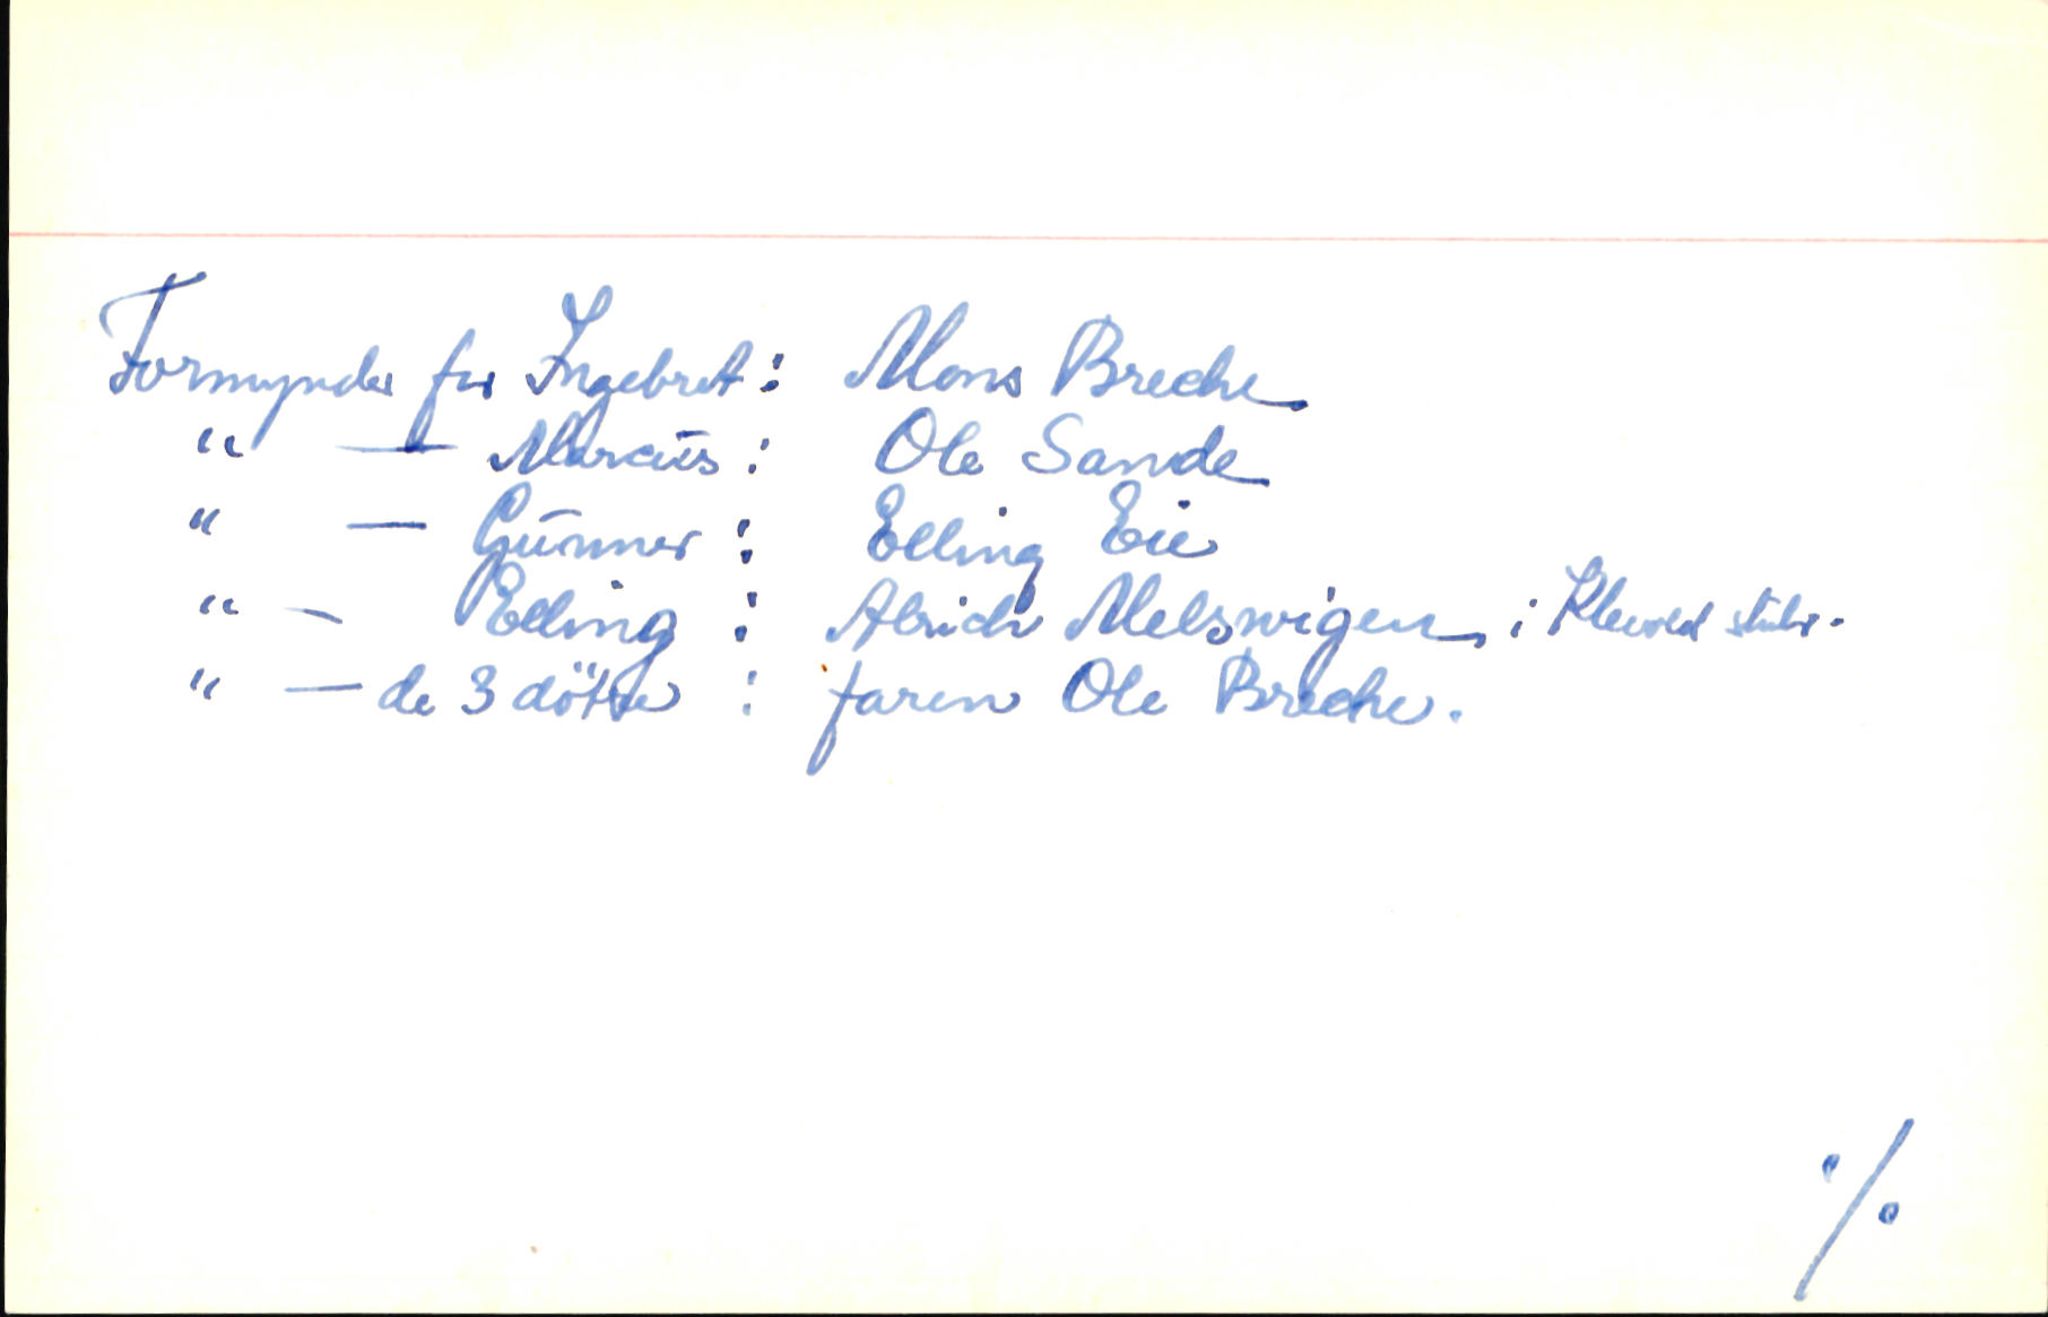 Formynder for Ingebret: Mons Breche
" — Marcus: Ole Sande
" — Gunner: Elling Eie
" — Elling: Alrich Melswigen, i Klewold skibr.
" — de 3 døtre: faren Ole Breche.
·/.